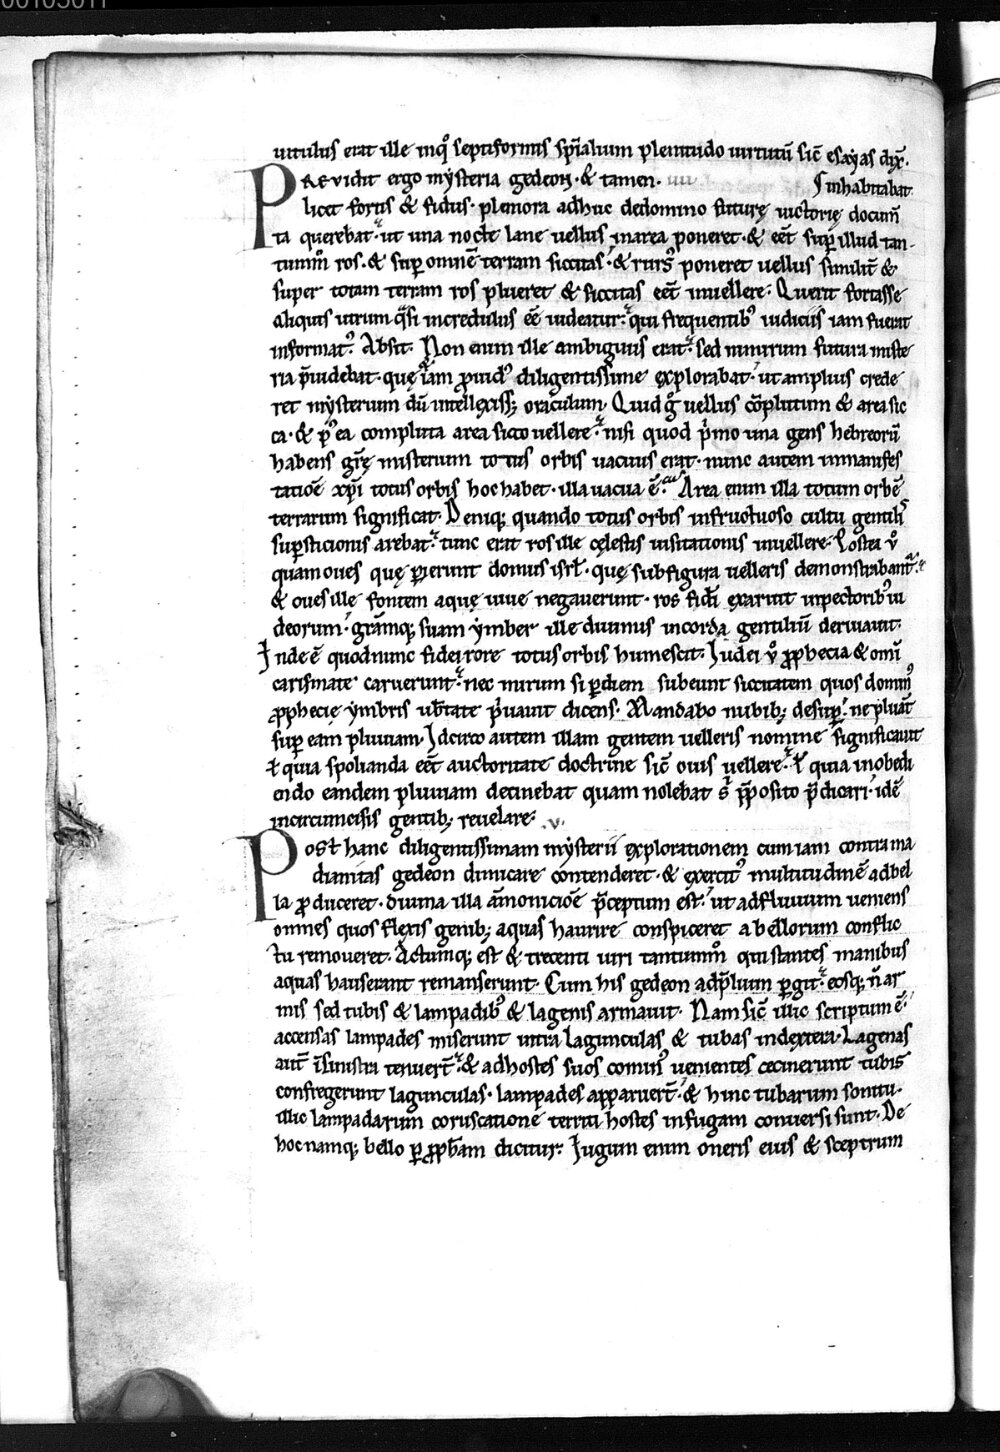 00105011
uitulus erat ille in q̊ septiformis sp̄ialium plenitudo uirtutū sic̄ esayas dix̄.
PRęvidit ergo mysteria gedeon. & tamen. iiii inhabitabat
licet fortis & fidus. pleniora adhuc dedomino futurę uictorię docum̄
ta querebat. ut una nocte lane uellus inarea poneret. & eēt sup̄ illud tan-
tummͦ ros. & sup̄ omnē terram siccitas. & rursꝰ poneret uellus similit̄ &
super totam terram ros plueret & siccitas eēt inuellere. Querit fortasse
aliquis utrum q̄si incredulus eē uideatur. qui frequentibꝰ iudiciis iam fuerat
informatꝰ. Absit. Non enim ille ambiguus erat. sed nimirum futura miste
ria p̄uidebat. quę iam ꝓuidꝰ diligentissime explorabat. ut amplius crede
ret mysterium dū intellexiss; oraculum. Quid g̊ uellus cōplutum & area sic
ca. & p̊ ea compluta area sicco uellere. nisi quod p̄mo una gens hebreorū
habens grę misterium totius orbis uacuus erat. nunc autem inmanifes
tatioē xp̄i totus orbis hoc habet. illa uacua ē. Area enim illa totum orbē
terrarum significat. Deniq; quando totus orbis infructuoso cultu gentilis
sup̄sticionis arebat. tunc erat ros ille cęlestis uisitationis inuellere. Postea ů
quam oues quę ꝑierunt domus isrl̄. quę subfigura uelleris demonstrabant̄.
& oues ille fontem aquę uiue negauerunt. ros fidei exaruit inpectoribꝰ iu
deorum. grāmq; suam ymber ille diuinus incorda gentiliū deriuauit.
Inde ē quodnunc fidei rore totus orbis humescit. Iudei ů ꝓphecia & omī
carismate caruerunt. nec mirum si ꝑdiem subeunt siccitatem quos domin̄ꝰ
ꝓphecię ymbris ub̄tate p̄uauit dicens. Mandabo nubib; desup̄. ne pluāt
sup̄ eam pluuiam. Idcirco autem illam gentem uelleris nomine significauit
ł quia spolianda eēt auctoritate doctrine sic̄ ouis uellere. ł quia inobedi
endo eandem pluuiam detinebat quam nolebat s̄ p̄posito p̄dicari. idē
incircumcisis gentib; reuelare. .v.
Post hanc diligentissimam mysterii explorationem cum iam contra ma
dianitas gedeon dimicare contenderet. & exercitꝰ multitudinē adbel
la ꝓduceret. diuina illa āmonicioē p̄ceptum est. ut adfluuium ueniens
omnes quos flexis genib; aquas haurire conspiceret abellorum conflic
tu remoueret. Actumq; est & trecenti uiri tantummͦ qui stantes manibus
aquas hauserant remanserunt. Cum his gedeon adp̄lium ꝑgit. eosq; n̄ ar
mis sed tubis & lampadibꝰ & lagenis armauit. Nam sic̄ illic scriptum ē.
accensas lampades miserunt intra lagunculas & tubas indextera. Lagenas
aut̄ īsinistra tenuert̄. & adhostes suos cominꝰ uenientes cecinerunt tubis
confregerunt lagunculas. lampades apparuert̄. & hinc tubarum sonitu.
illic lampadarum coruscatione territi hostes infugam conuersi sunt. De
hoc namq; bello ꝑ ꝓph̄am dicitur. Iugum enim oneris eius & sceptrum